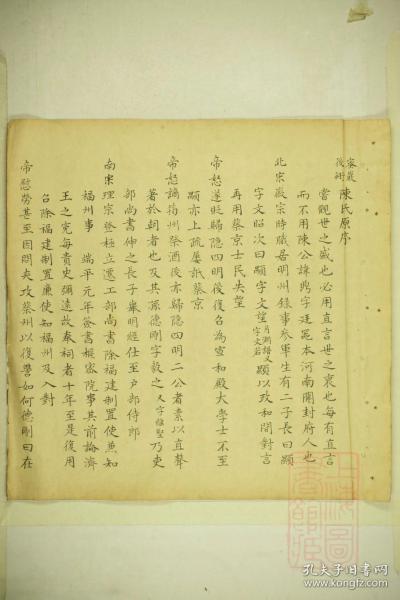 陳氏原序
嘗觀世之盛也必用直言世之衰也每有直言
而不用陳公諱鼎字廷冕本河南開封府人也
北宋徽宗時職居明州錄事參軍生有二子長曰顯
字文昭次曰顥字文望 顯以政和間對言
再用蔡京士民失望
帝怒遂貶歸隐四明後復召為宣和殿大學士不至
顥亦上疏屡詆蔡京
帝怒謫揚州祭酒後亦歸隐四明二公者素以直聲
著於朝者也及其孫德剛字毅之 乃吏
部尚書伸之長子歲明經仕至户部侍郎
南宋理宗登極立遷工部尚書除福建制置使兼知
福州事 端平元年簽書樞密院事其前論濟
王之寃每貴史彌遠故奉祠者十年至是復用
召除福建制置廉使知福州及入對
帝慰勞甚至因問夾攻蔡州以復讐如何德剛曰在
孔夫子旧书网
www.kongfz.com